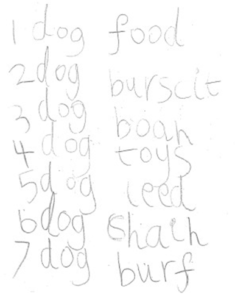 1 dog food
2 dog burscit
3 dog boan
4 dog toys
5 dog leed
6 dog chaih
7 dog burf